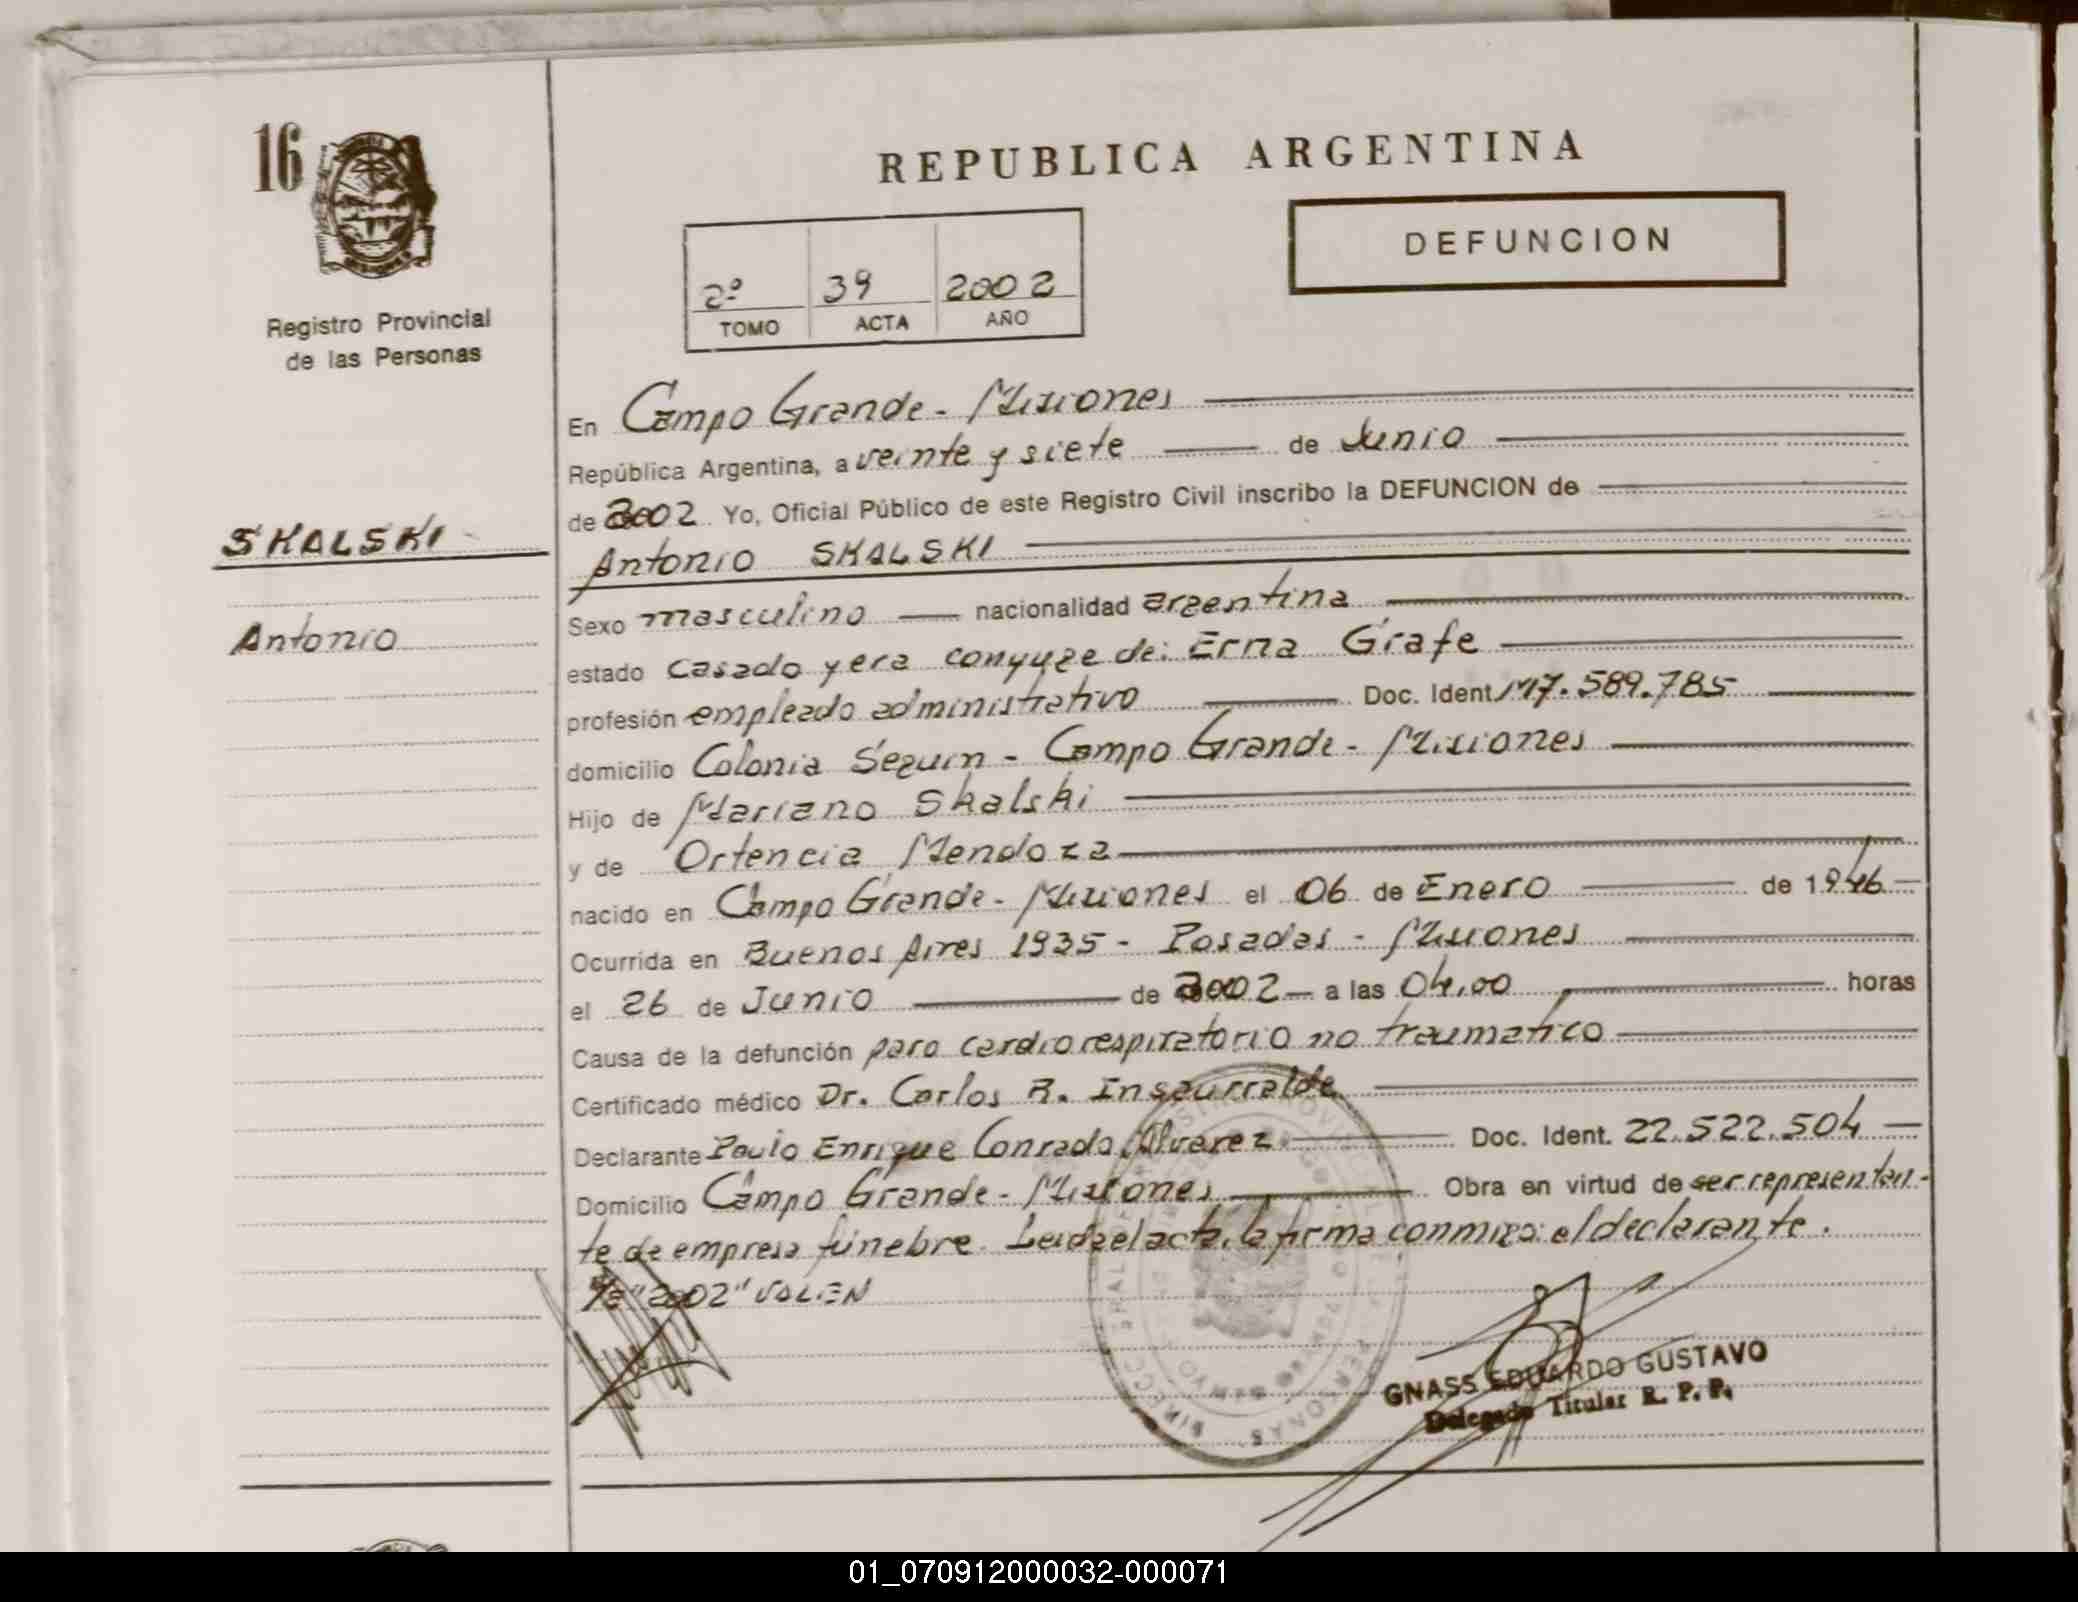 16
REPUBLICA ARGENTINA
DEFUNCION
2º 39 2002
TOMO ACTA AÑO
Registro Provincial
de las Personas
En Campo Grande - Misiones
República Argentina, a veinte y siete de Junio
de 2002 Yo, Oficial Público de este Registro Civil inscribo la DEFUNCION de
SKALSKI
Antonio SKALSKI
Antonio
Sexo masculino nacionalidad argentina
estado casado y era conyuge de: Erna Grafe
profesión empleado administrativo Doc. Ident M7.589.785
domicilio Colonia Seguin - Campo Grande - Misiones
Hijo de Mariano Skalski
y de Ortencia Mendoza
nacido en Campo Grande - Misiones el 06 de Enero de 1946
Ocurrida en Buenos Aires 1935 - Posadas - Misiones
el 26 de Junio de 2002 a las 04,00 horas
Causa de la defunción paro cardiorespiratorio no traumatico
Certificado médico Dr. Carlos R. Insaurralde
Declarante Paulo Enrique Conrado Alvarez Doc. Ident. 22.522.504
Domicilio Campo Grande - Misiones Obra en virtud de ser representan-
te de empresa fúnebre. Leida el acta, la firma conmigo: el declarante.
"2002" VALEN
GNASS EDUARDO GUSTAVO
Delegado Titular R. P. P.
01_070912000032-000071